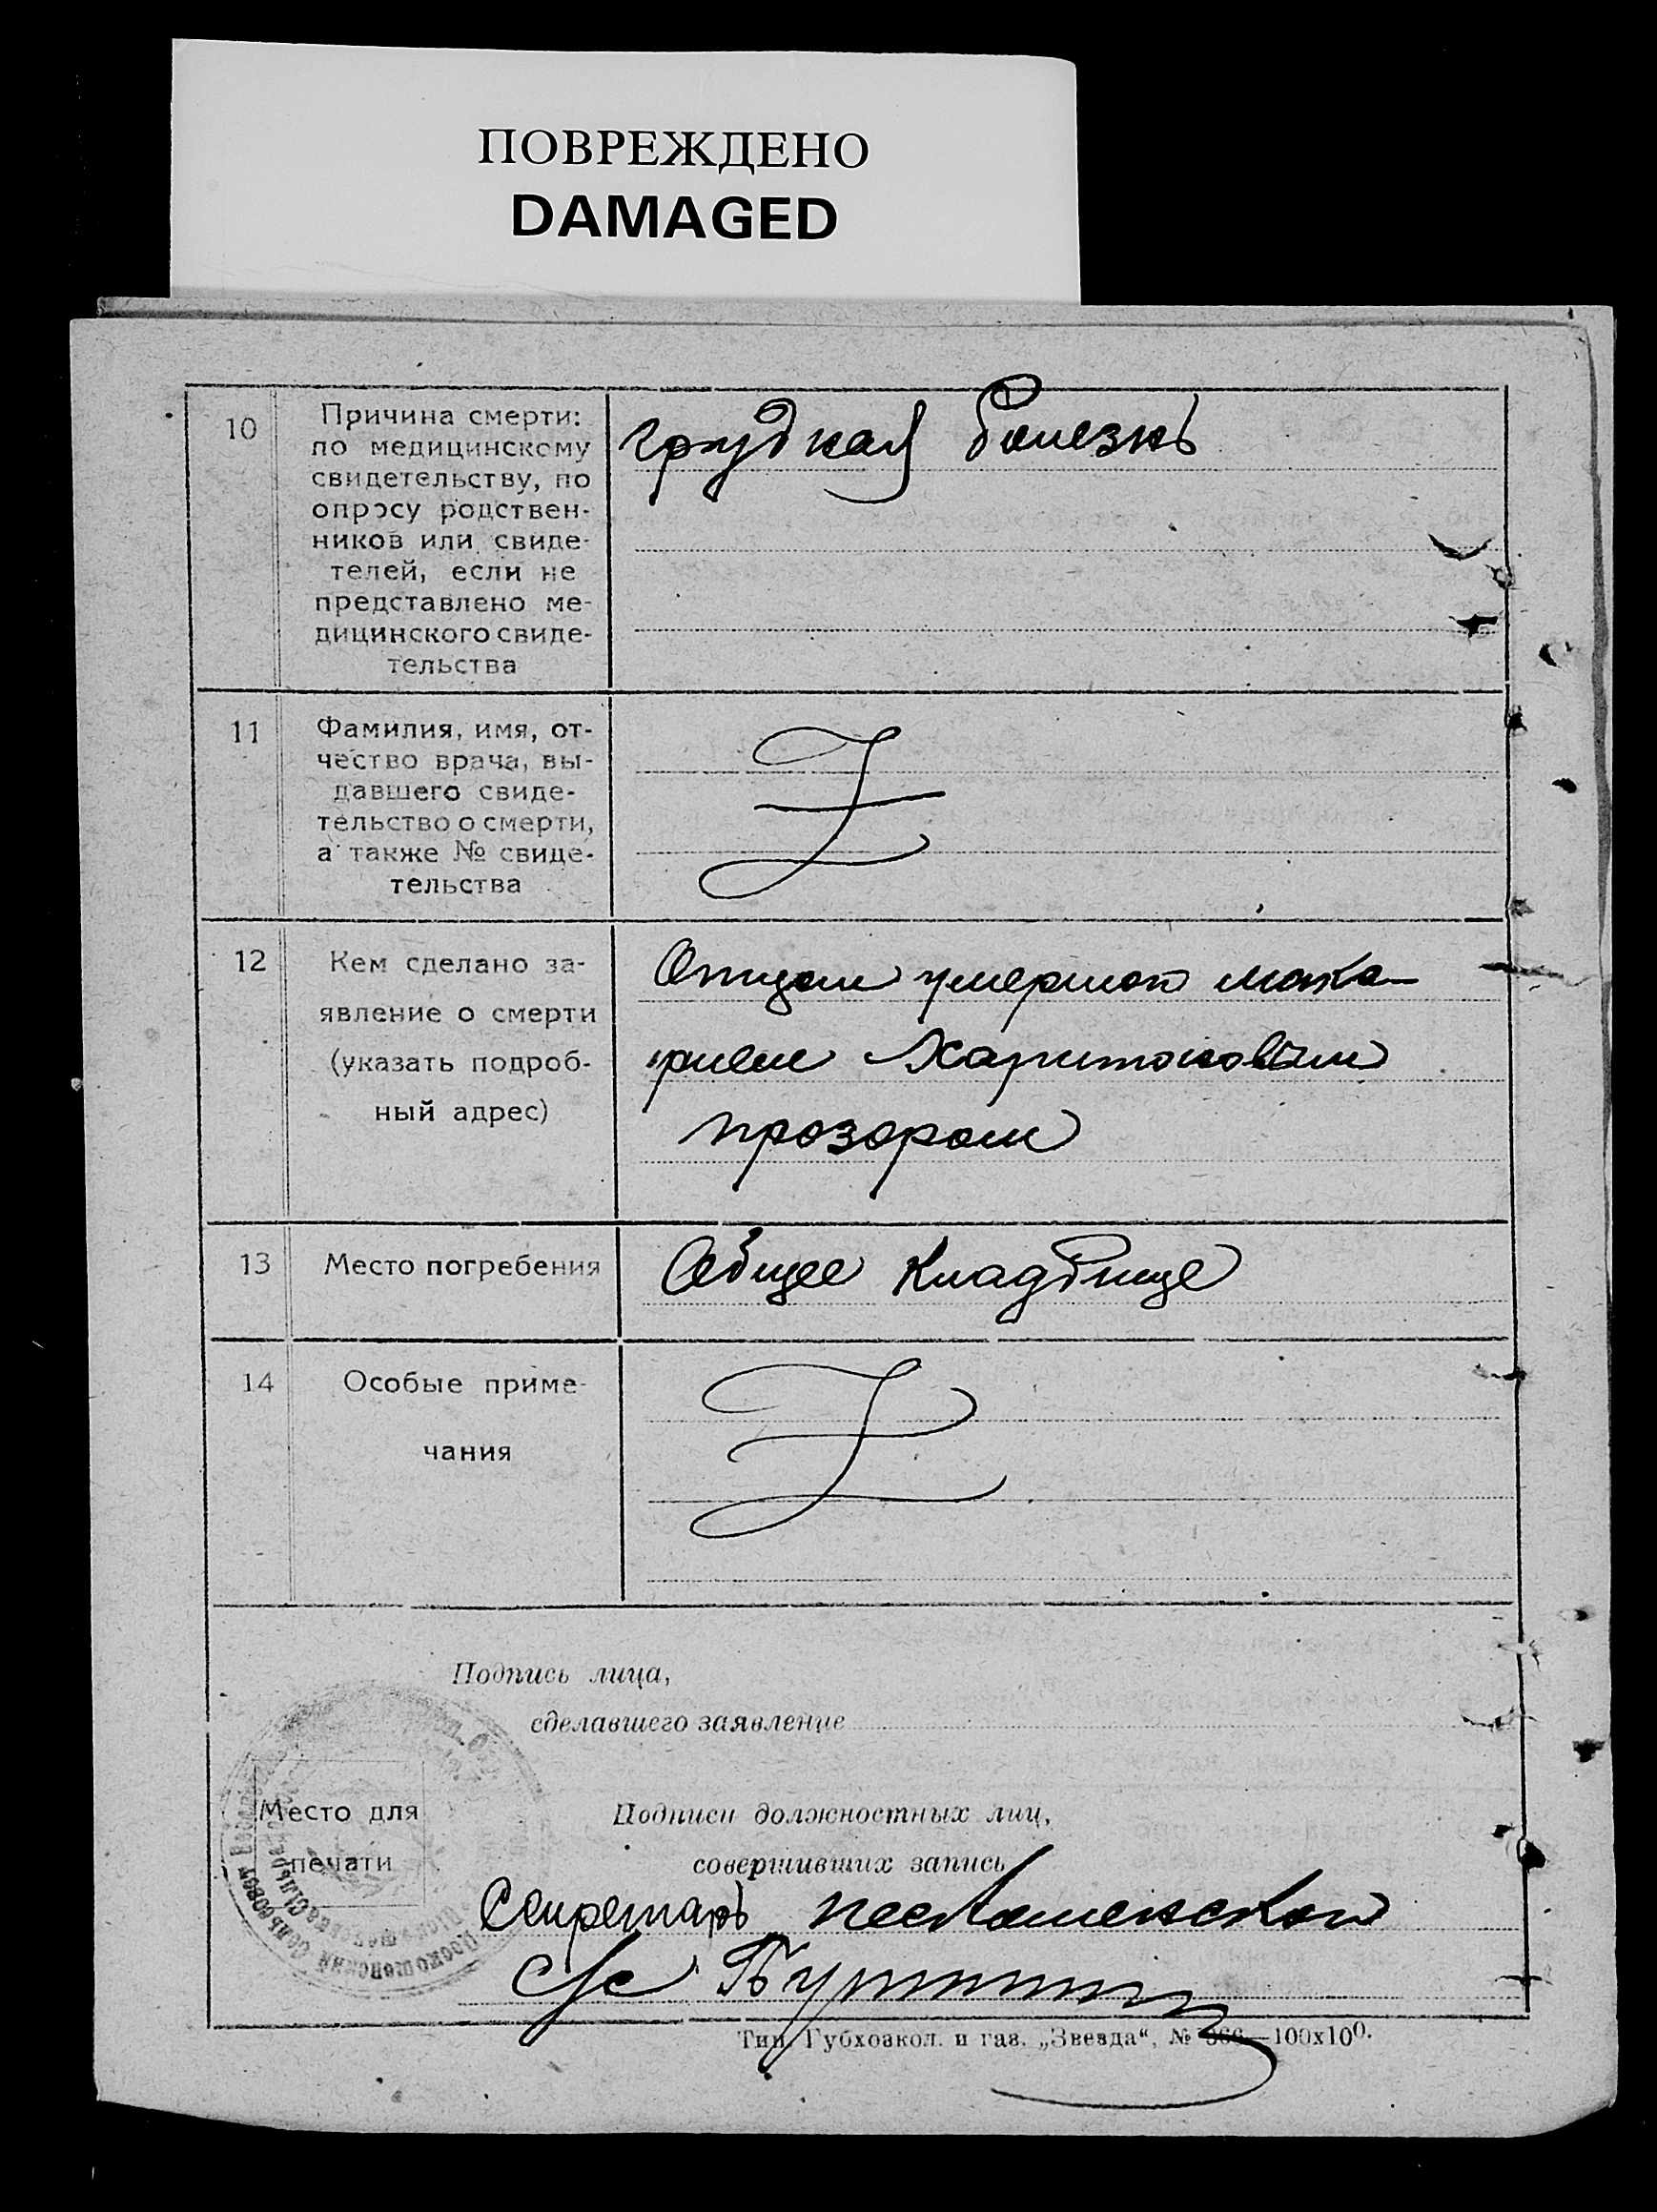 ПОВРЕЖДЕНО
DAMAGED
10
Причина смерти:
по медицинскому
свидетельству, по
опросу родствен-
ников или свиде-
телей, если не
представлено ме-
дицинского свиде-
тельства
грудная болезнь
11
Фамилия, имя, от-
чество врача, вы-
давшего свиде-
тельство о смерти,
а также № свиде-
тельства
12
Кем сделано за-
явление о смерти
(указать подроб-
ный адрес)
Отцом умершей мака-
рием Харитоновым
прозором
13
Место погребения
Общее кладбище
14
Особые приме-
чания
Подпись лица,
сделавшего заявление
Место для
печати
Подписи должностных лиц,
совершивших запись
Секретарь
с/с
Тип. Губхозкол. и газ. „Звезда“, № 366—100х100.